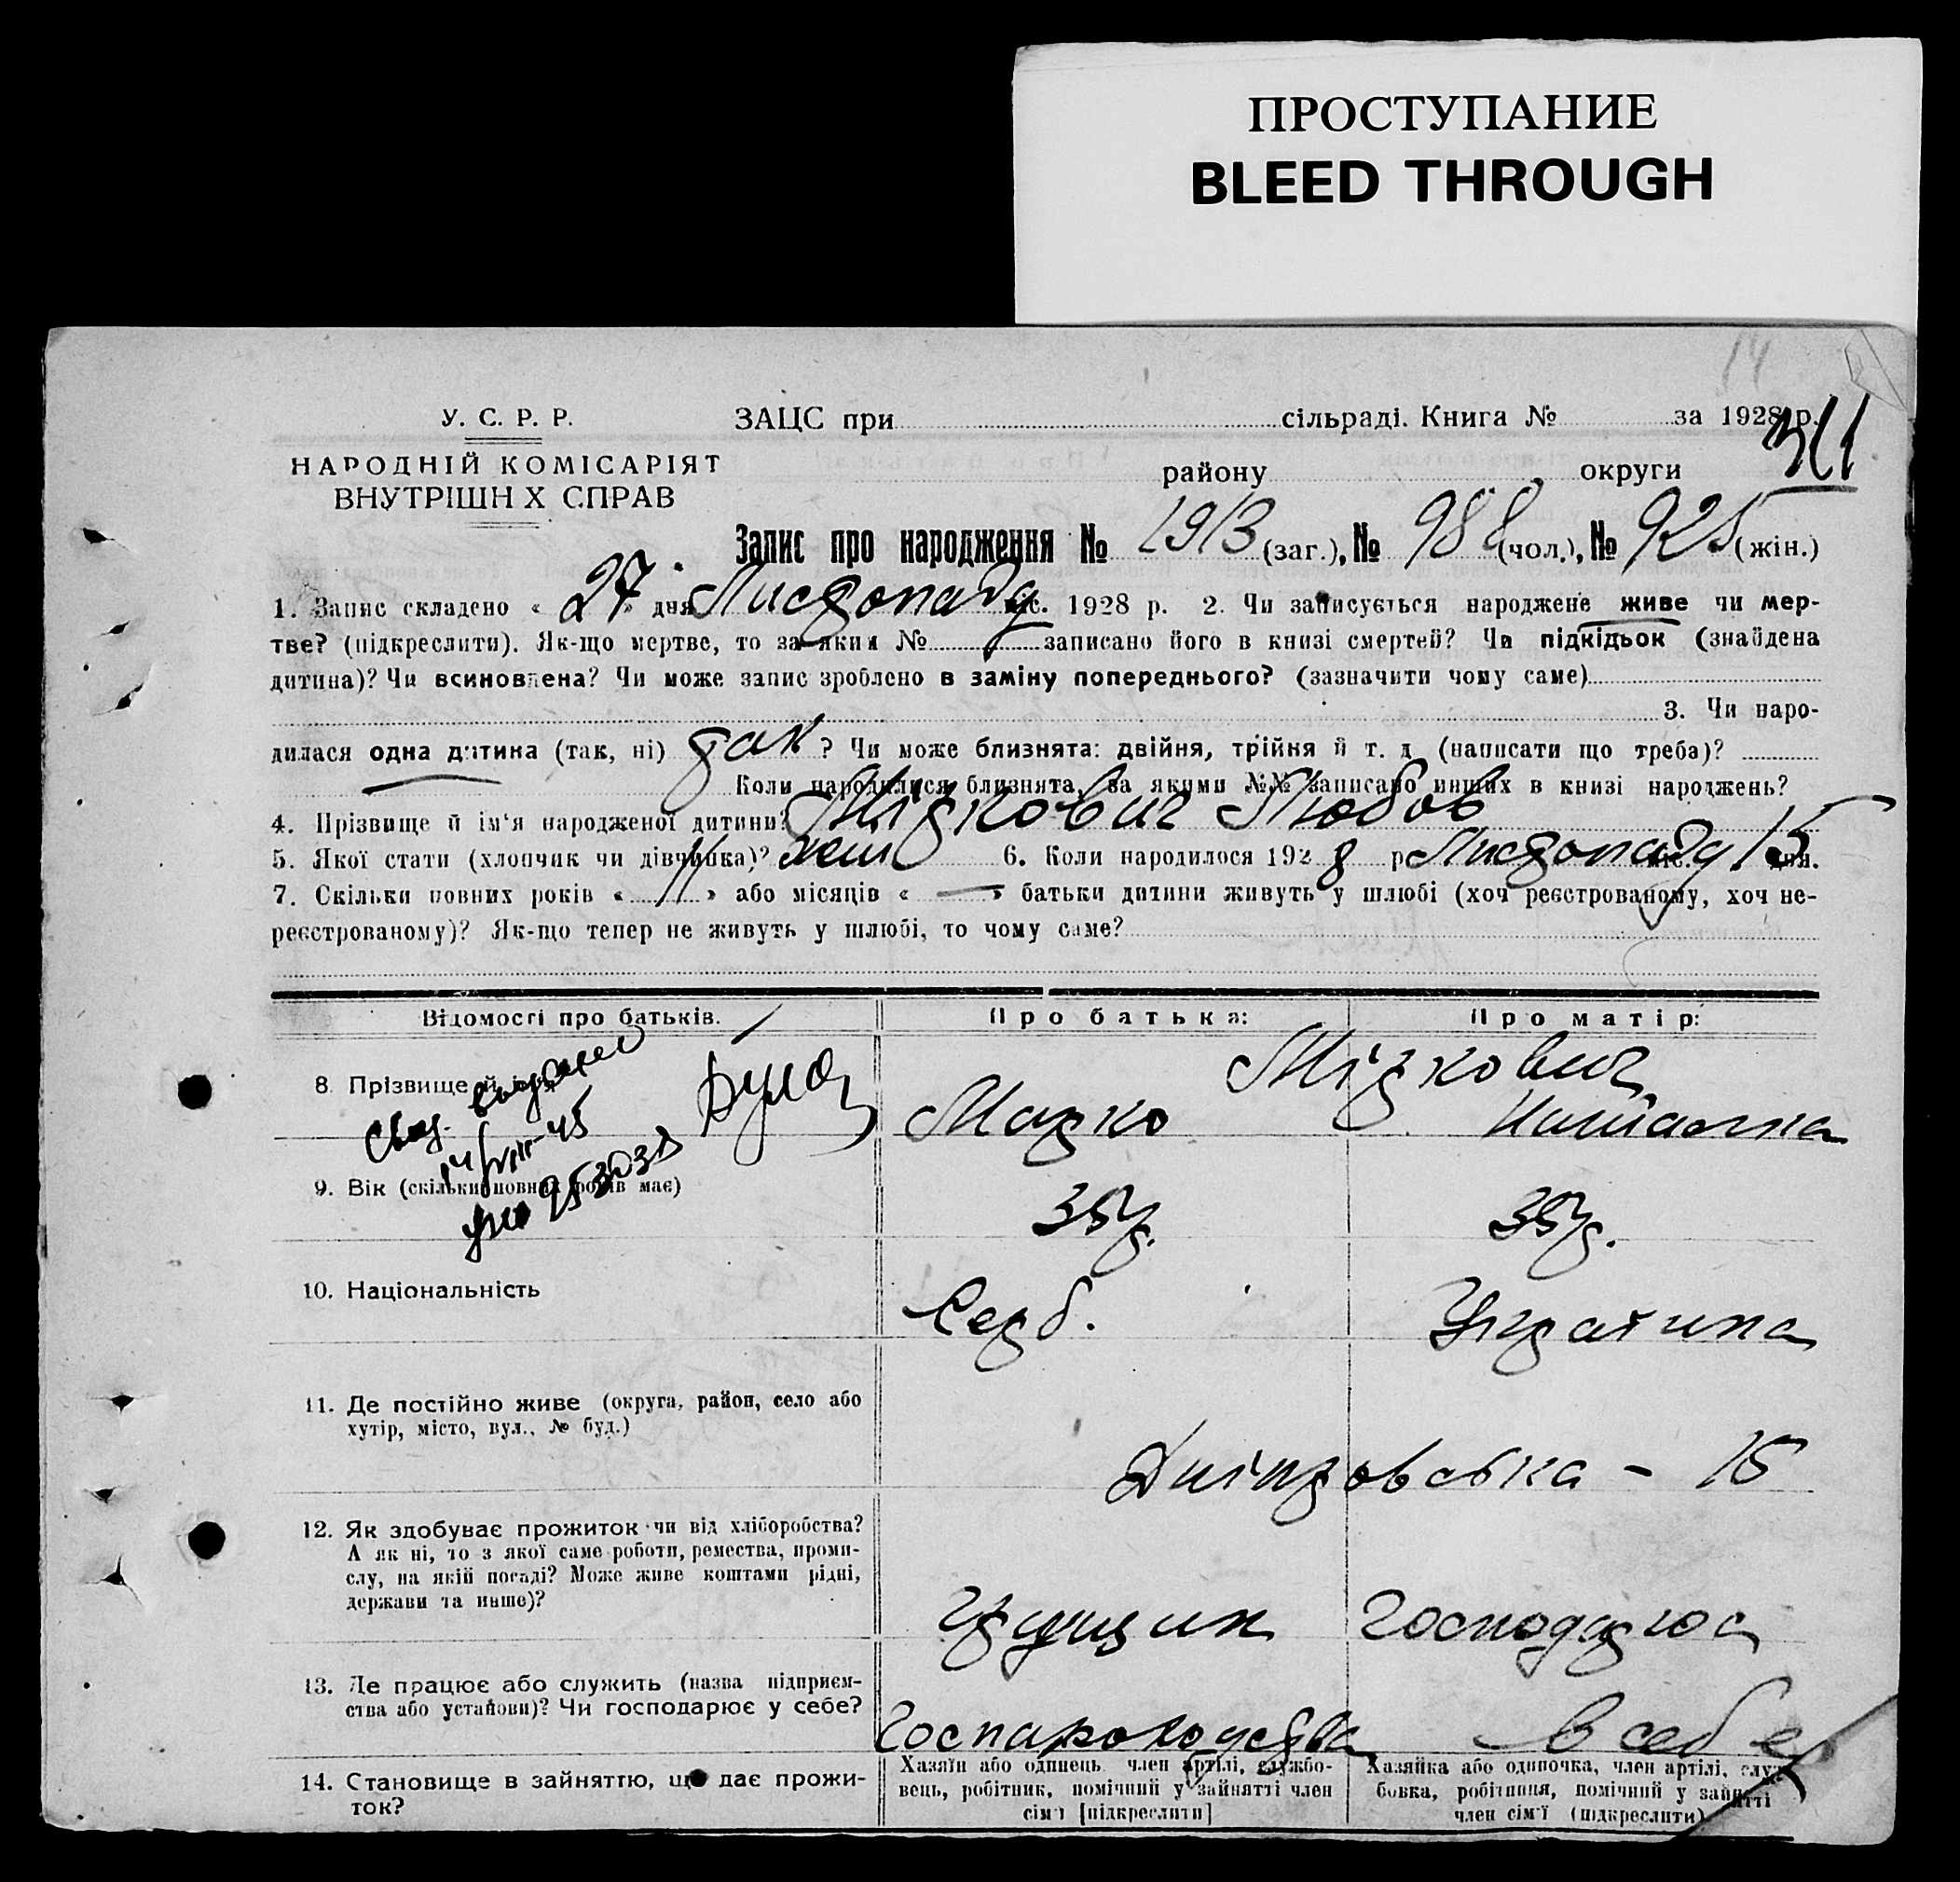 ПРОСТУПАНИЕ
BLEED THROUGH
14
У. С. Р. Р.
ЗАЦС при сільраді. Книга № за 1928 р.
НАРОДНІЙ КОМІСАРІЯТ
ВНУТРІШН Х СПРАВ
району округи
Запис про народження № 1913 (заг.), № 988 (чол.), № 925 (жін.)
1. Запис складено « 27 » дня Листопаду міс. 1928 р. 2. Чи записується народжене живе чи мер-
тве? (підкреслити). Як-що мертве, то за яким № записано його в книзі смертей? Чи підкідьок (знайдена
дитина)? Чи всиновлена? Чи може запис зроблено в заміну попереднього? (зазначити чому саме)
3. Чи наро-
дилася одна дитина (так, ні) так ? Чи може близнята: двійня, трійня й т. д. (написати що треба)?
Коли народилися близнята, за якими №№ записано инших в книзі народжень?
4. Прізвище й ім'я народженої дитини? Міркович Любов
5. Якої стати (хлопчик чи дівчинка)? жін 6. Коли народилося 1928 р. Листопаду міс. 15 дня.
7. Скільки повних років « 11 » або місяців « — » батьки дитини живуть у шлюбі (хоч реєстрованому, хоч не-
реєстрованому)? Як-що тепер не живуть у шлюбі, то чому саме?
Відомості про батьків.
Про батька:
Про матір:
8. Прізвище й ім'я
Міркович
Марко
Наталка
9. Вік (скільки повних років має)
35 р.
35 р.
10. Національність
Серб.
Українка
11. Де постійно живе (округа, район, село або
хутір, місто, вул., № буд.)
Дніпровська - 15
12. Як здобуває прожиток чи від хліборобства?
А як ні, то з якої саме роботи, ремества, проми-
слу, на якій посаді? Може живе коштами рідні,
держави та инше)?
Грущик
Господарює
13. Де працює або служить (назва підприєм-
ства або установи)? Чи господарює у себе?
Госпароходства
в себе
14. Становище в зайняттю, що дає прожи-
ток?
Хазяїн або одинець член артілі, службо-
вець, робітник, помічний у зайнятті член
сім'ї [підкреслити]
Хазяйка або одиночка, член артілі, служ-
бовка, робітниця, помічний у зайнятті
член сім'ї (підкреслити)